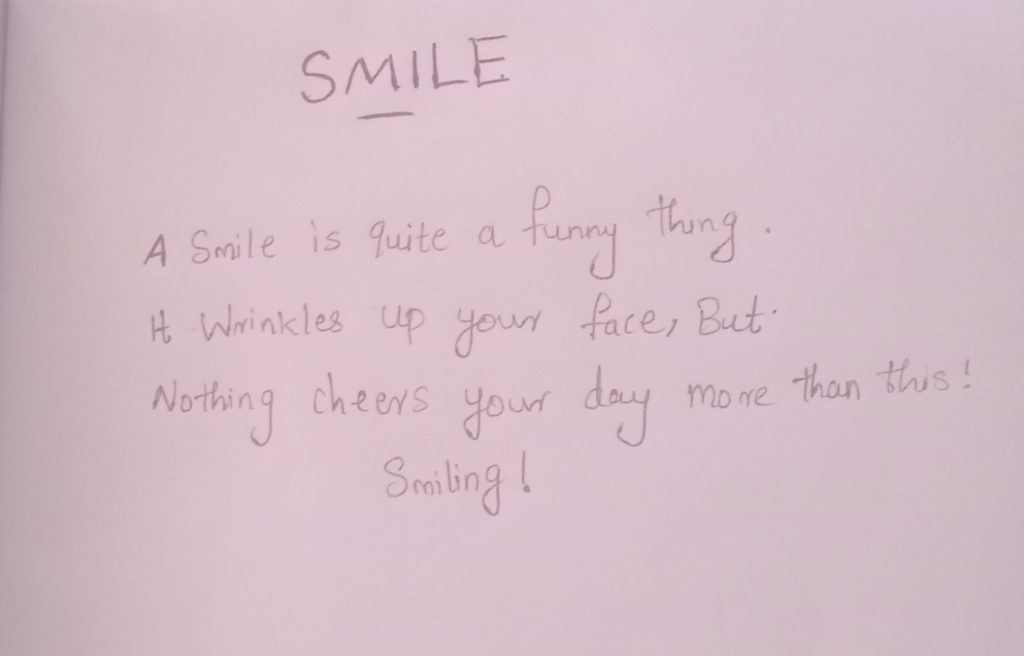 SMILE
A Smile is quite a funny thing.
It Wrinkles up your face, But.
Nothing cheers your day more than this!
Smiling!